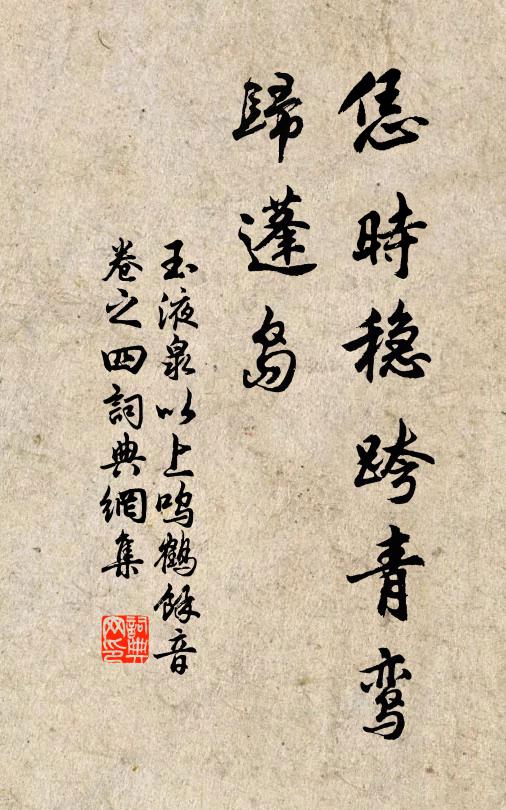 恁時稳跨青鸾
歸蓬岛
玉液泉以上鸣鶴餘音
卷之四詞典網集
詞典
网印